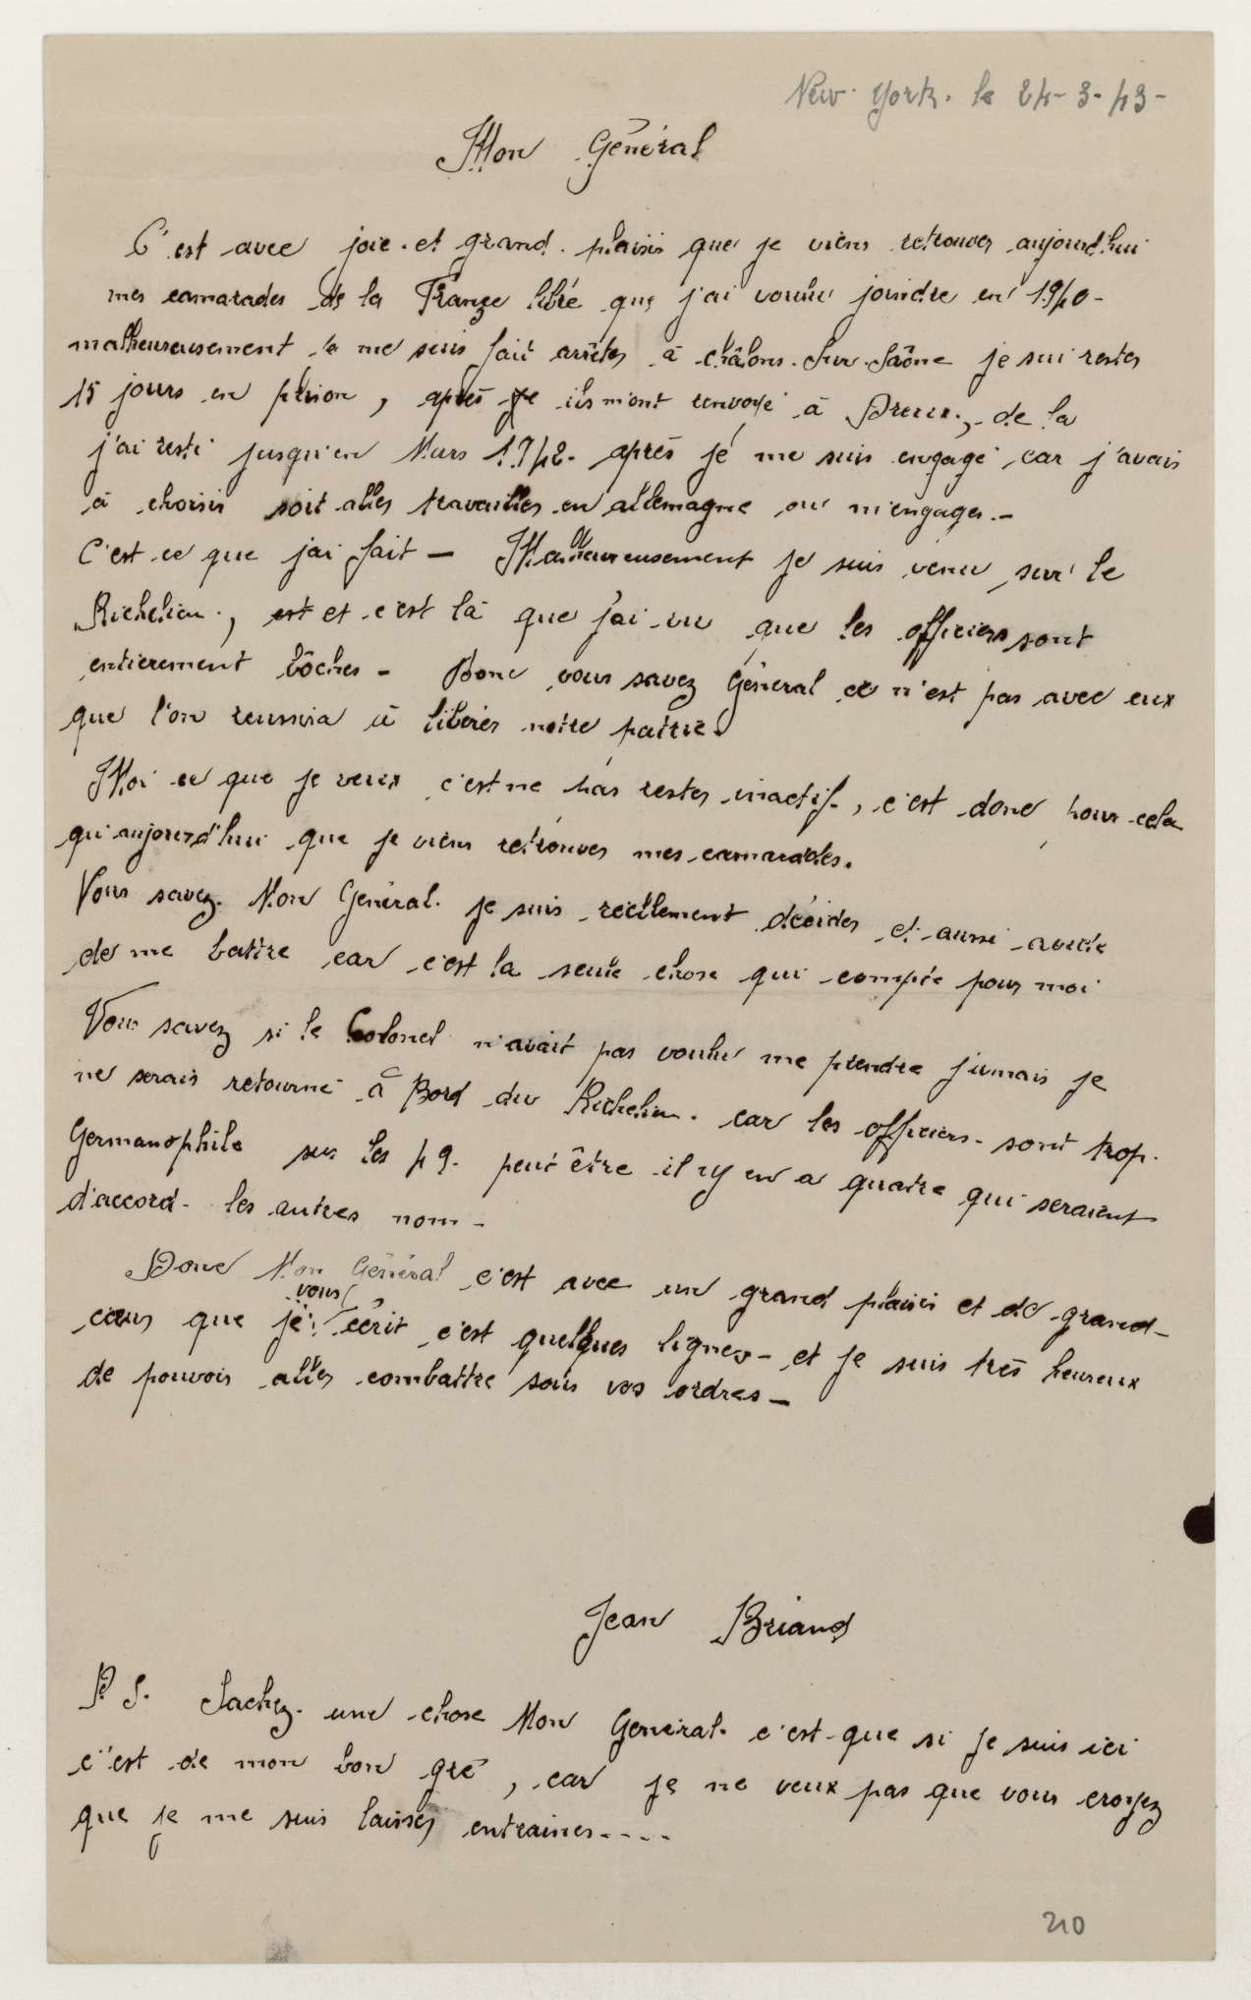 New-York. le 24-3-43-
Mon Général
C'est avec joie et grand plaisir que je viens retrouver aujourd'hui
mes camarades de la France libre que j'ai voulu joindre en 1940-
malheureusement je me suis fait arrêter à châlons-Sur-Saône je sui rester
15 jours en prison, après je ils m'ont renvoyé à Dreux, de la
j'ai resté jusqu'en Mars 1942- après je me suis engagé car j'avais
à choisir soit aller travailler en allemagne ou m'engager.-
C'est ce que j'ai fait - Malheureusement je suis venu sur le
Richelieu, est et c'est là que j'ai vu que les officiers sont
entierement bôches - Donc vous savez Général ce n'est pas avec eux
que l'on reussira à libérer notre patrie.
Moi ce que je veux c'est ne pas rester inactif, c'est donc pour cela
qu'aujourd'hui que je viens retrouver mes camarades.
Vous savez Mon Général je suis réellement décider et aussi avide
de me battre car c'est la seule chose qui compte pour moi
Vous savez si le Colonel n'avait pas voulu me prendre jamais je
ne serais retourné à Bord du Richelieu. car les officiers sont trop
Germanophile sur les 49- peut être il y en a quatre qui seraient
d'accord- les autres nom-
Donc Mon Général c'est avec un grand plaisir et de grand-
vous
cœur que je écrit c'est quelques lignes- et je suis très heureux
de pouvoir aller combattre sous vos ordres-
Jean Briand
P.S. Sachez une chose Mon Général c'est que si je suis ici
c'est de mon bon gré, car je ne veux pas que vous croyez
que je me suis laisser entrainer....
210